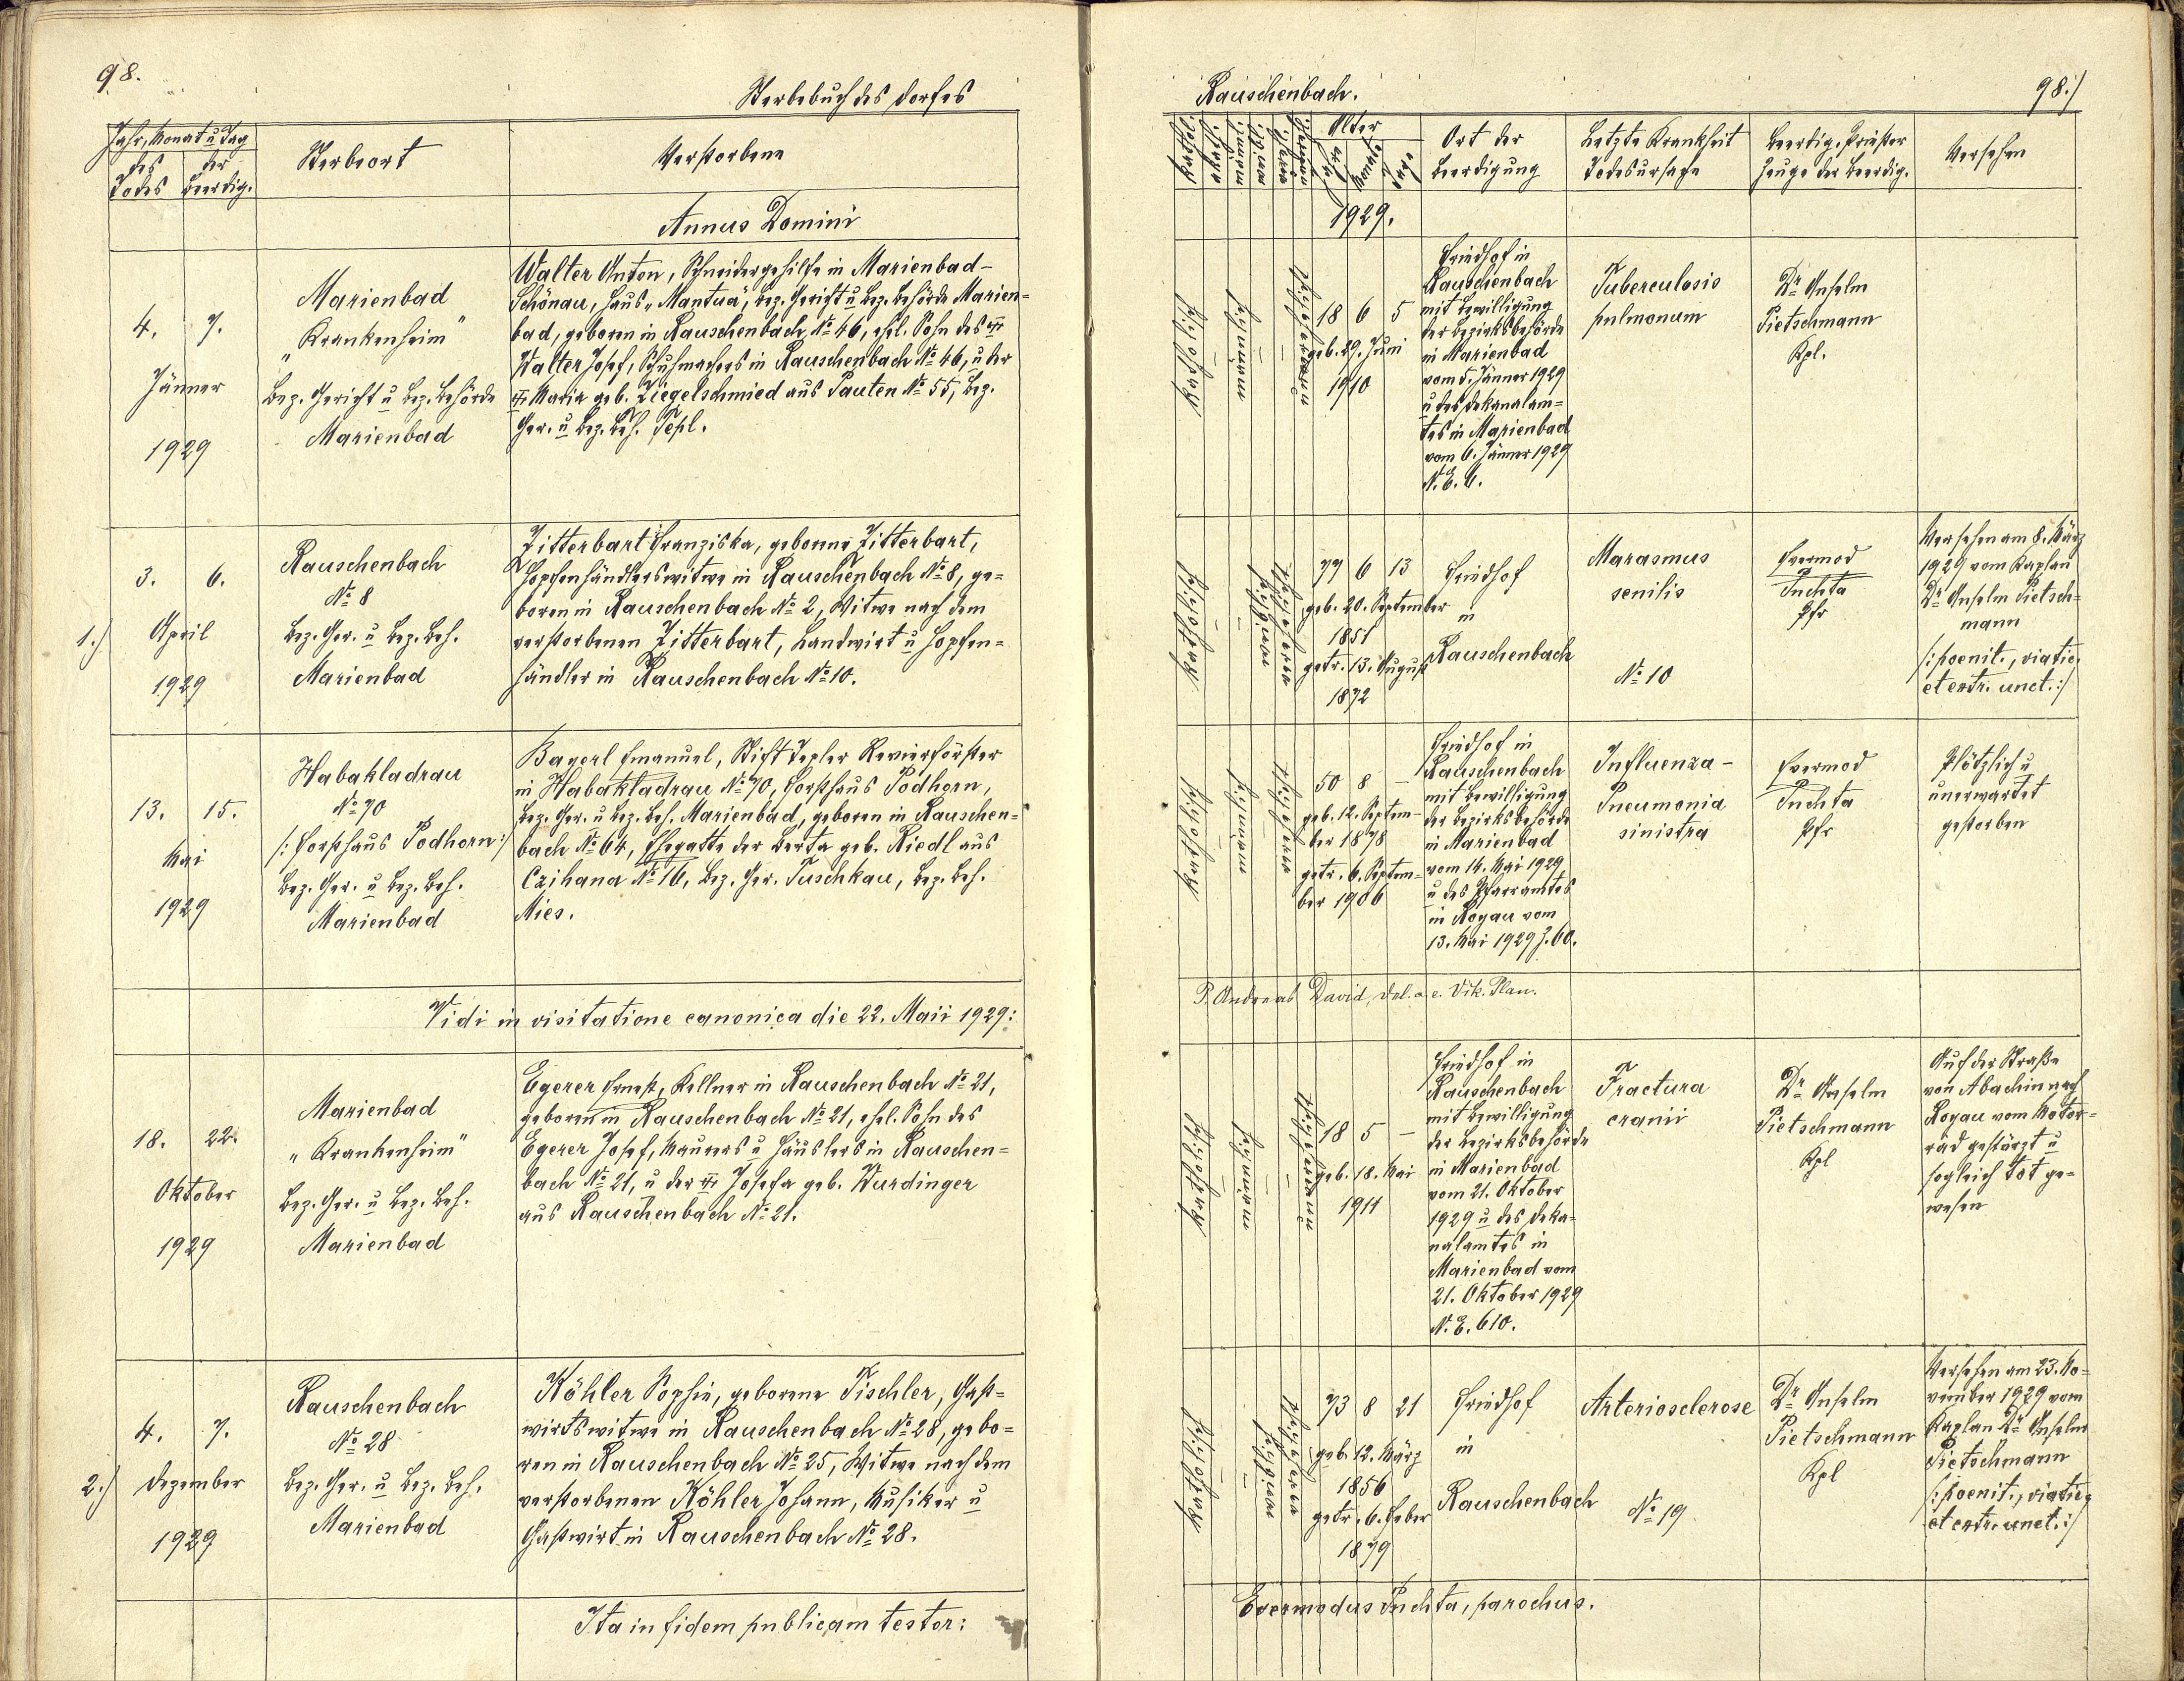 98.
Sterbebuch des Dorfes
Jahr, Monat u Tag
des Todes
der Beerdig.
Sterbeort
Verstorbene
Annus Domini
4. 7.
Jänner
1929
Marienbad
„Krankenheim"
Bez. Gericht u Bez. Behörde
Marienbad
Walter Anton, Schneidergehilfe in Marienbad-
Schönau, Haus „Mantua", Bez. Gericht u Bez. Behörde Marien=
bad, geboren in Rauschenbach № 46, ehel. Sohn des
Walter Josef, Schuhmachers in Rauschenbach № 46, u der
Maria geb. Ziegelschmied aus Pauten № 55, Bez.
Ger. u Bez. Beh. Tepl.
1.)
3. 6.
April
1929
Rauschenbach
№ 8
Bez. Ger. u Bez. Beh.
Marienbad
Zitterbart Franziska, geborene Zitterbart,
Hopfenhändlerswitwe in Rauschenbach № 8, ge=
boren in Rauschenbach № 2, Witwe nach dem
verstorbenen Zitterbart, Landwirt u Hopfen=
händler in Rauschenbach № 10.
13. 15.
Mai
1929
Habakladrau
№ 70
/: Forsthaus Podhorn :/
Bez. Ger. u Bez. Beh.
Marienbad
Bayerl Emanuel, Stift Tepler Revierförster
in Habakladrau № 70, Forsthaus Podhorn,
Bez. Ger. u Bez. Beh. Marienbad, geboren in Rauschen=
bach № 64, Ehegatte der Berta geb. Riedl aus
Czihana № 16, Bez. Ger. Tuschkau, Bez. Beh.
Mies.
Vidi in visitatione canonica die 22. Maii 1929:
18. 22.
Oktober
1929
Marienbad
„Krankenheim"
Bez. Ger. u Bez. Beh.
Marienbad
Egerer Ernest, Kellner in Rauschenbach № 21,
geboren in Rauschenbach № 21, ehel. Sohn des
Egerer Josef, Maurers u Häuslers in Rauschen=
bach № 21, u der Josefa geb. Wurdinger
aus Rauschenbach № 21.
2.)
4. 7.
Dezember
1929
Rauschenbach
№ 28
Bez. Ger. u Bez. Beh.
Marienbad
Köhler Sophie, geborene Tischler, Gast=
wirtswitwe in Rauschenbach № 28, gebo=
ren in Rauschenbach № 25, Witwe nach dem
verstorbenen Köhler Johann, Musiker u
Gastwirt in Rauschenbach № 28.
Ita in fidem publicam testor:
Rauschenbach.
98./
Alter
Jahre
Monate
Tage
Ort der
Beerdigung
Letzte Krankheit
Todesursache
Beerdig. Priester
Zeuge der Beerdig.
Versehen
1929.
katholisch
männ
18 6 5
geb. 29. Juni
1910
Friedhof in
Rauschenbach
mit Bewilligung
der Bezirksbehörde
in Marienbad
vom 5. Jänner 1929
u des Dekanalam=
tes in Marienbad
vom 6. Jänner 1929
N. E. 6.
Tuberculosis
pulmonum
Dr Anselm
Pietschmann
Kpl.
katholisch
77 6 13
geb. 20. September
1851
getr. 13. August
1872
Friedhof
in
Rauschenbach
Marasmus
senilis
№ 10
Evermod
Puchta
Pfr
Versehen am 8. März
1929 vom Kaplan
Dr Anselm Pietsch=
mann
/: poenit., viatic.
et extr. unct. :/
katholisch
50 8 —
geb. 12. Septem=
ber 1878
getr. 6. Septem=
ber 1906
Friedhof in
Rauschenbach
mit Bewilligung
der Bezirksbehörde
in Marienbad
vom 14. Mai 1929
u des Pfarramtes
in Royau vom
13. Mai 1929 Z. 60.
Influenza-
Pneumonia
sinistra
Evermod
Puchta
Pfr
Plötzlich u
unerwartet
gestorben
P. Andreas David, del. a. e. Vik. Plan.
katholisch
18 5 —
geb. 18. Mai
1911
Friedhof in
Rauschenbach
mit Bewilligung
der Bezirksbehörde
in Marienbad
vom 21. Oktober
1929 u des Deka=
nalamtes in
Marienbad vom
21. Oktober 1929
N. E. 610.
Fractura
cranii
Dr Anselm
Pietschmann
Kpl
Auf der Straße
von Abaschin nach
Royau vom Motor=
rad gestürzt u
sogleich tot ge=
wesen
katholisch
73 8 21
geb. 12. März
1856
getr. 6. Feber
1879
Friedhof
in
Rauschenbach
Arteriosclerose
№ 19
Dr Anselm
Pietschmann
Kpl
Versehen am 23. No=
vember 1929 vom
Kaplan Dr Anselm
Pietschmann
/: poenit., viatic.
et extr. unct. :/
Evermodus Puchta, parochus.